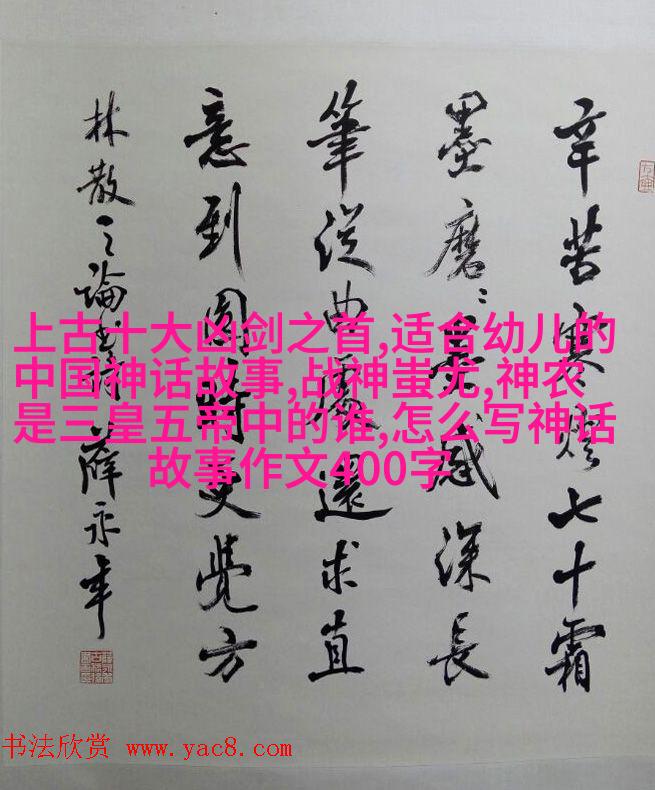 辛苦寒燈七十霜
墨磨〻墨感深長
筆從曲處還求直
意到圓時更覺方
林散之論書詩 薛永年
上古十大凶剑之首,适合幼儿的
中国神话故事,战神蚩尤,神农
是三皇五帝中的谁,怎么写神话
故事作文400字
书法欣赏 www.yac8.com